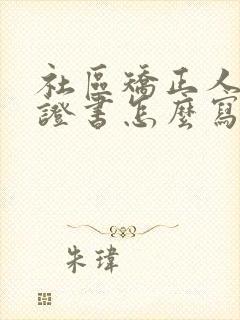 社區矯正人
證書怎麼寫
朱瑋